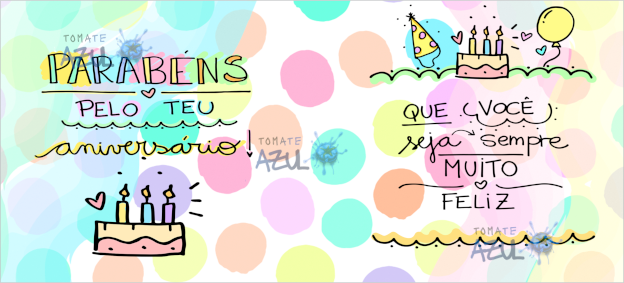 TOMATE
AZUL
PARABÉNS
PELO TEU
aniversário
TOMATE
AZUL
QUE VOCÊ:
seja sempre
MUITO
FELIZ
TOMATE
AZUL